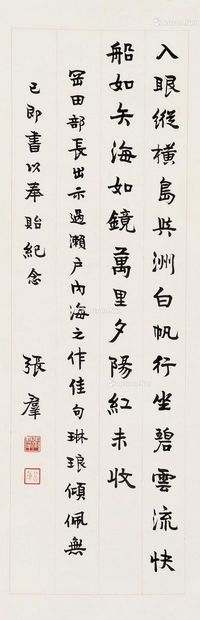 入眼縱橫島與洲白帆行坐碧雲流快
船如矢海如鏡萬里夕陽紅未收
岡田部長出示過瀨户內海之作佳句琳琅傾佩無
已即書以奉貽紀念
張羣